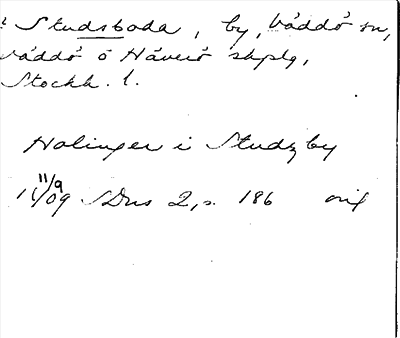 Studsboda, by, Väddö sn,
Väddö o Häverö skplg,
Stockh. l.
Holinger i Studzby
11/9
1409 SDns 2, s. 186 orig